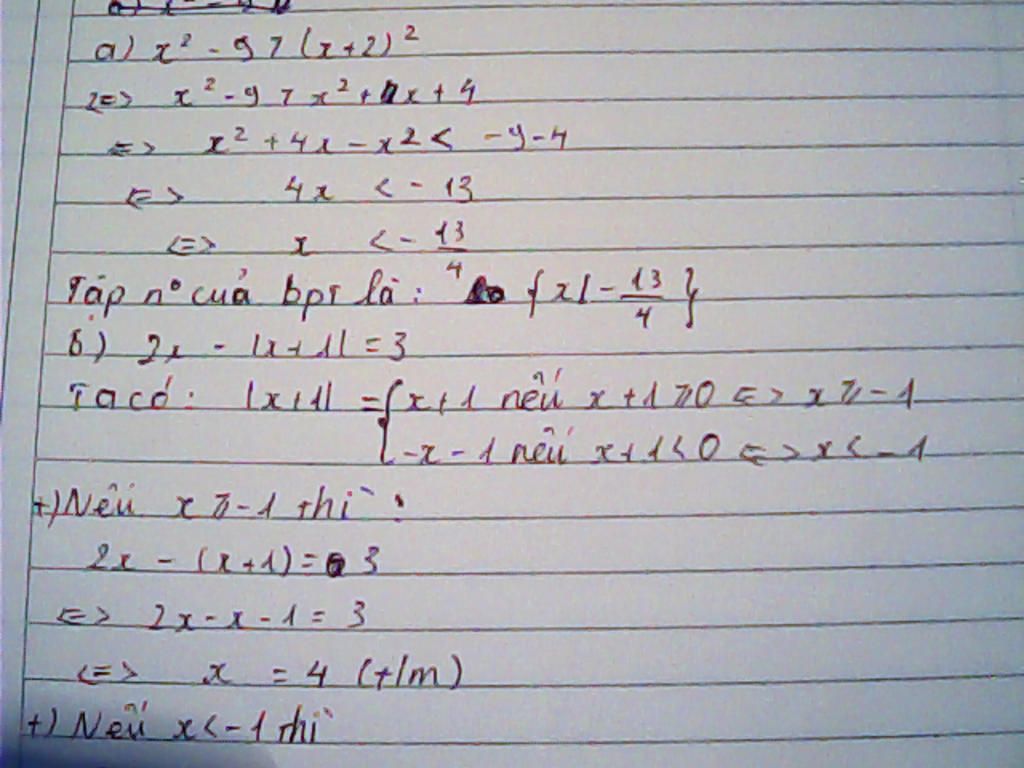 a) x² - 9 > (x+2)²
<=> x² - 9 > x² + 4x + 4
<=> x² + 4x - x² < -9-4
<=> 4x < - 13
<=> x < - 13/4
Tập n° của bpt là: {x| - 13/4}
b) 2x - |x+1| = 3
Ta có: |x+1| = { x+1 nếu x+1 ⩾ 0 <=> x ⩾ -1
-x-1 nếu x+1 < 0 <=> x < -1
+) Nếu x ⩾ -1 thì :
2x - (x+1) = 3
<=> 2x - x - 1 = 3
<=> x = 4 (t/m)
+) Nếu x < -1 thì